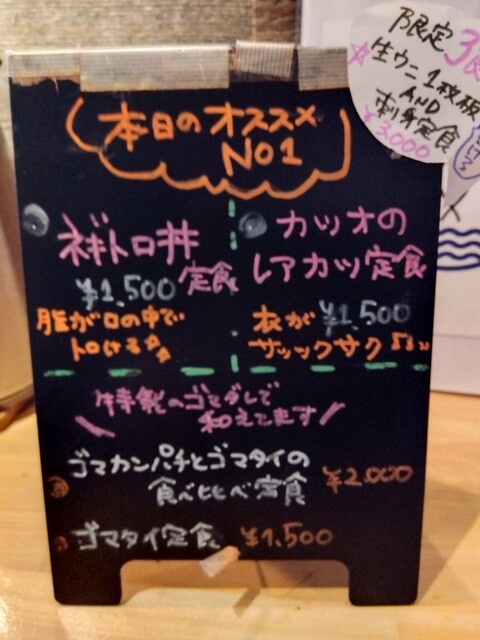 本日のオススメ
NO1
ネギトロ丼
定食
¥1,500
脂が口の中で
トロける
カツオの
レアカツ定食
¥1,500
衣が
サックサク
特製のゴマダレで
和えてます
ゴマカンパチとゴマタイの
食べ比べ定食
¥2.000
ゴマタイ定食 ¥1,500
限定3
生ウニ1枚板
AND
刺身定食
¥3,000